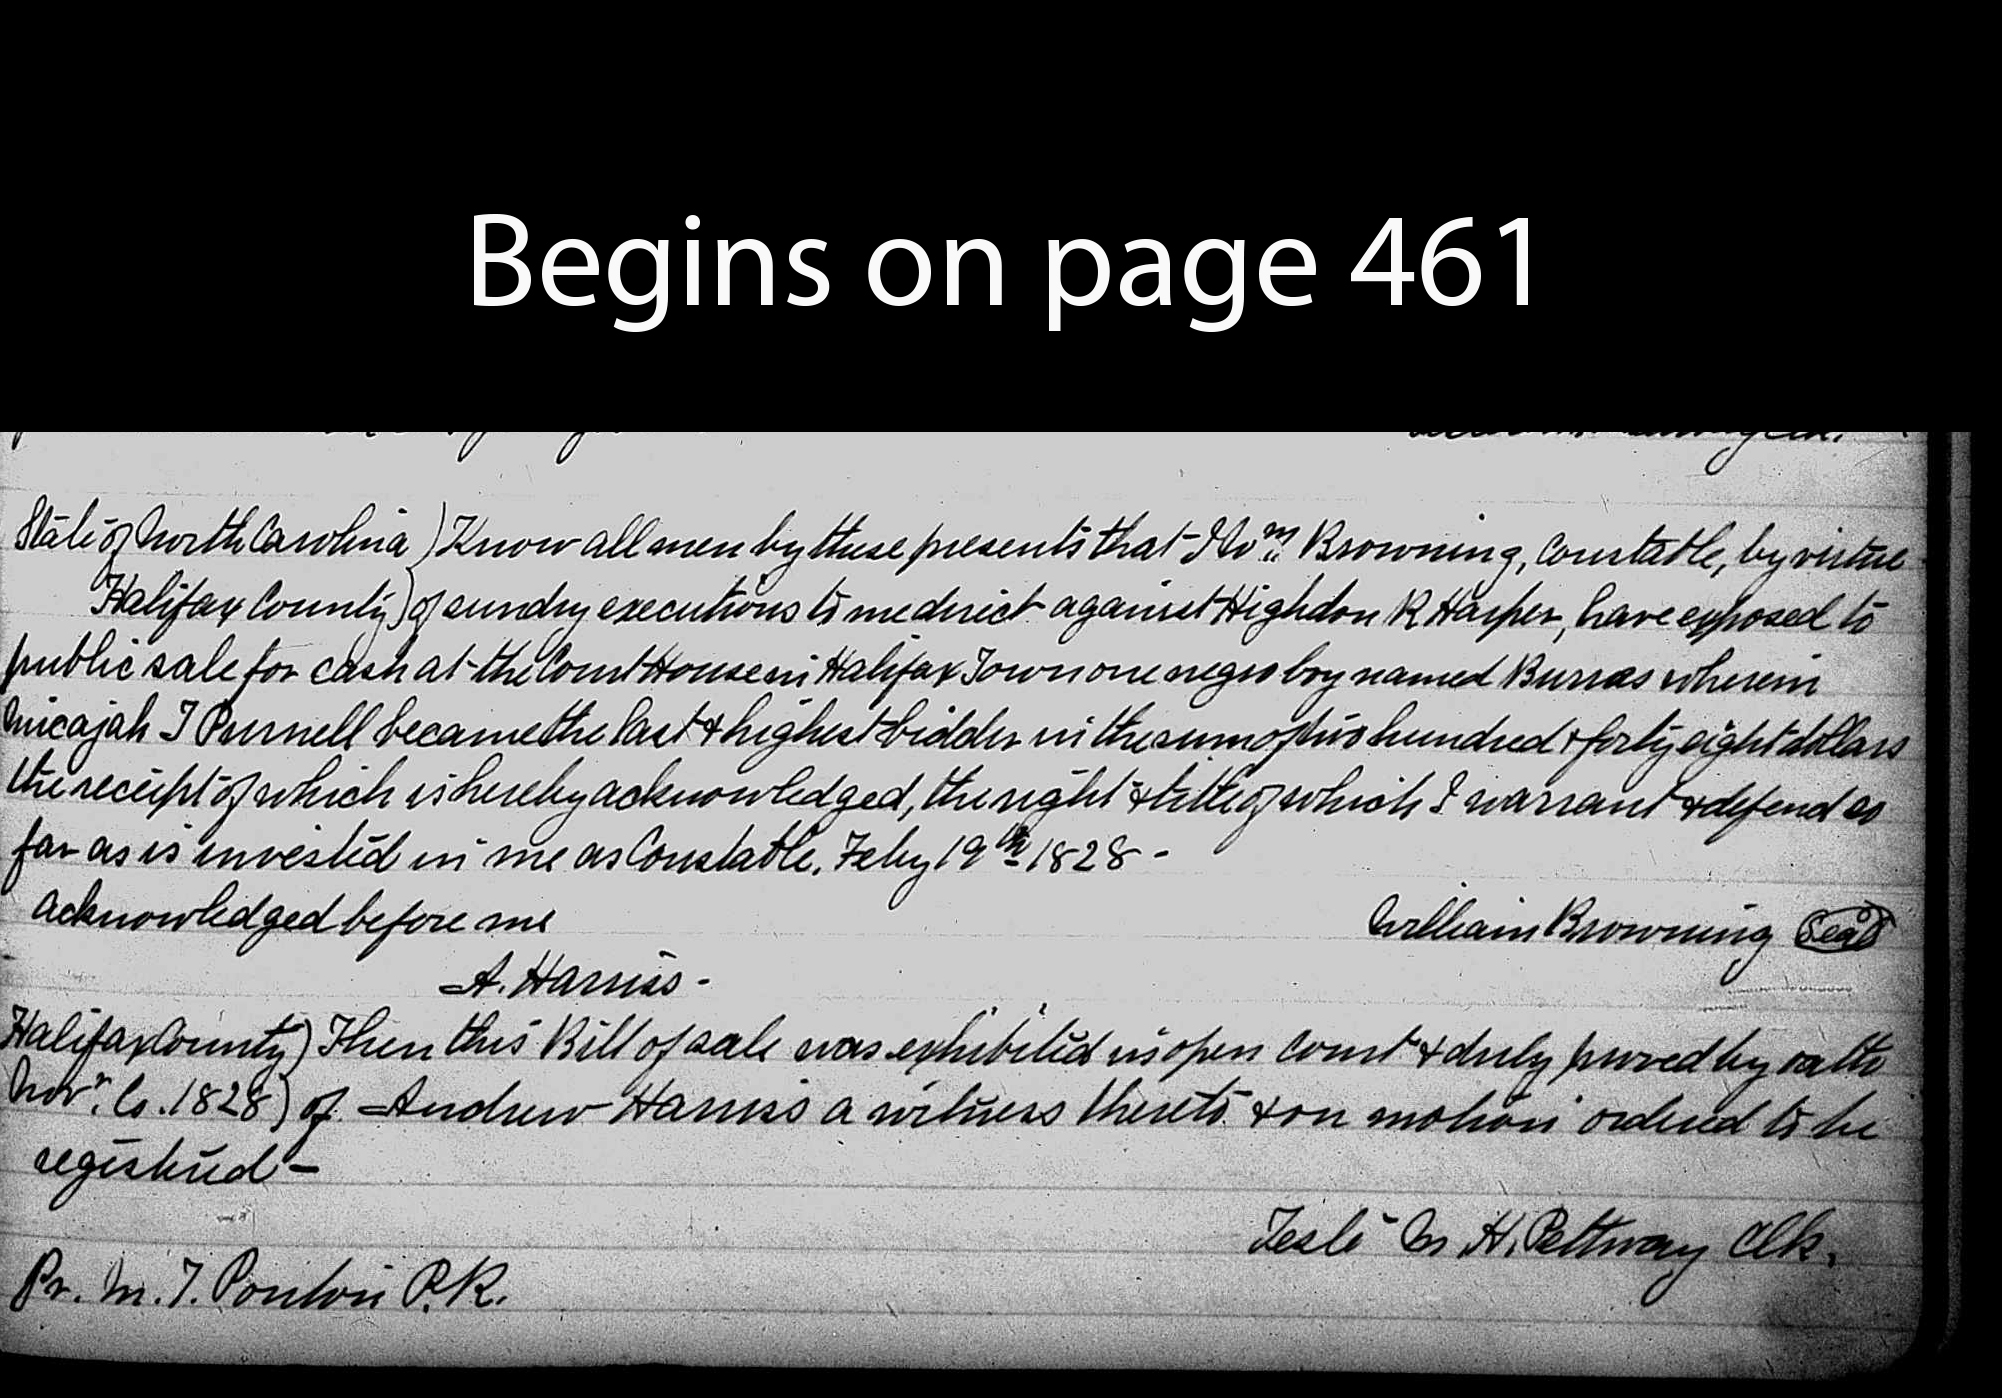 Begins on page 461
State of North Carolina ) Know all men by these presents that I Wm. Browning, Constable, by virtue
Halifax County ) of sundry executions to me direct against Highdon R Harper, have exposed to
public sale for cash at the Court House in Halifax Town one negro boy named Burras wherein
Micajah T Purnell became the last & highest bidder in the sum of two hundred & forty eight dollars
the receipt of which is hereby acknowledged, the right & title of which I warrant & defend as
far as is invested in me as Constable. Feby 19th 1828 -
acknowledged before me William Browning Seal
A. Harriss -
Halifax County ) Then this Bill of sale was exhibited in open Court & duly proved by oath
Novr. Co. 1828 ) of Andrew Harriss a witness thereto & on motion ordered to be
registered -
Teste M H. Pettway Clk.
Pr. M. T. Ponton P.R.